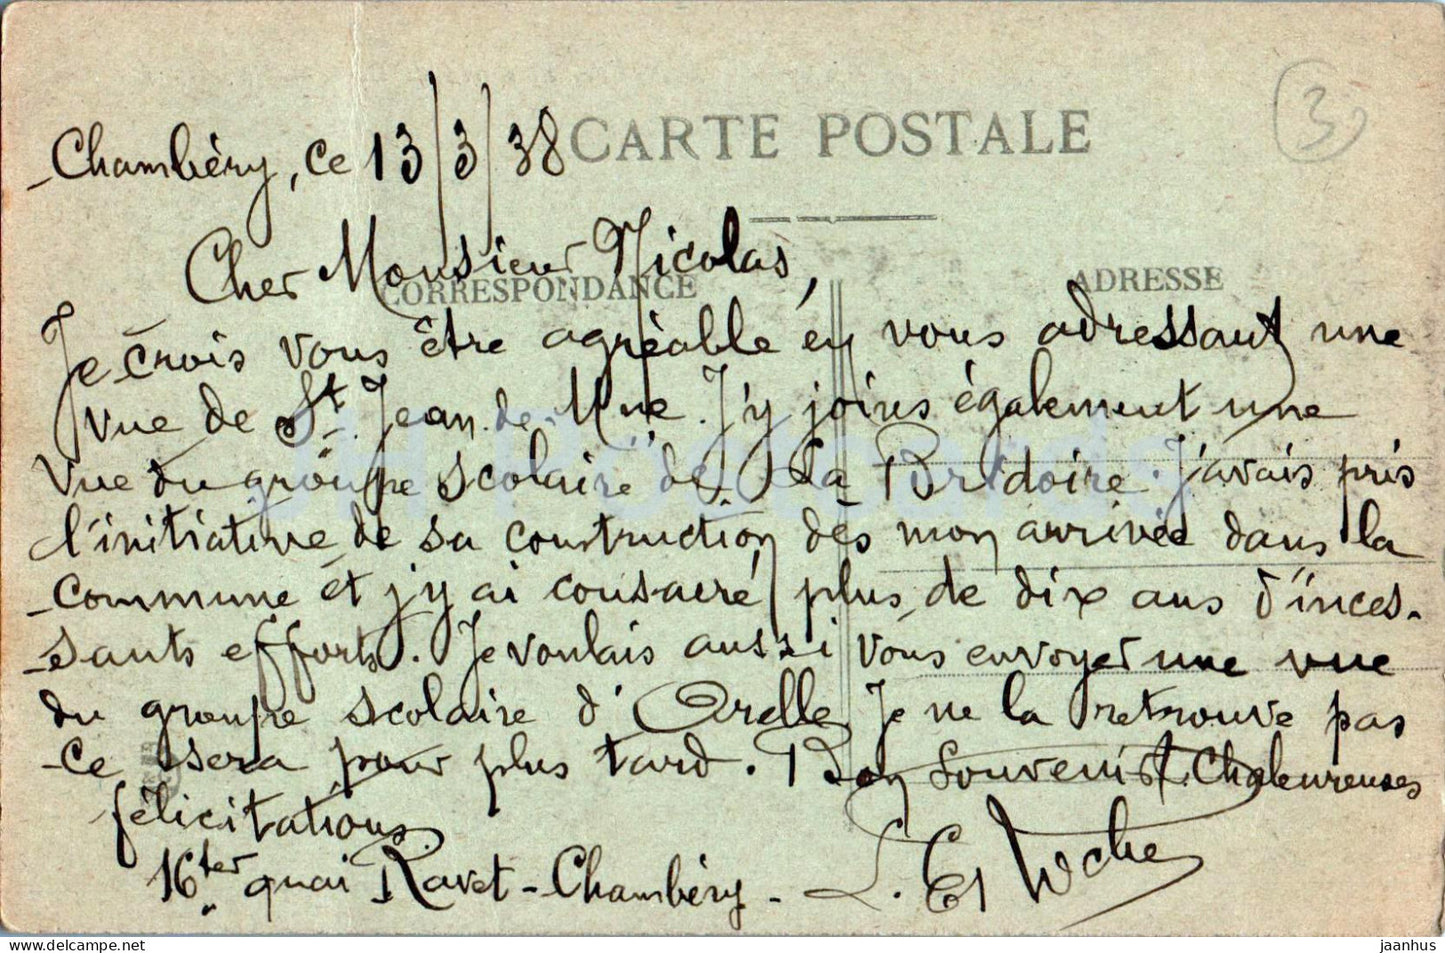 3
CARTE POSTALE
Chambéry, ce 13/3/38
Cher Monsieur Nicolas,
CORRESPONDANCE
ADRESSE
Je crois vous être agréable en vous adressant une
vue de St. Jean. de. Mne. J'y joins également une
vue du groupe scolaire de La Bridoire. J'avais pris
l'initiative de sa construction dès mon arrivée dans la
commune et j'y ai consacré plus de dix ans d'inces-
sants efforts. Je voulais aussi vous envoyer une vue
du groupe scolaire d'Orelle. Je ne la retrouve pas
Ce sera pour plus tard. Bon Souvenir et Chaleureuses
félicitations.
16ter quai Ravet - Chambéry -
jaanhus